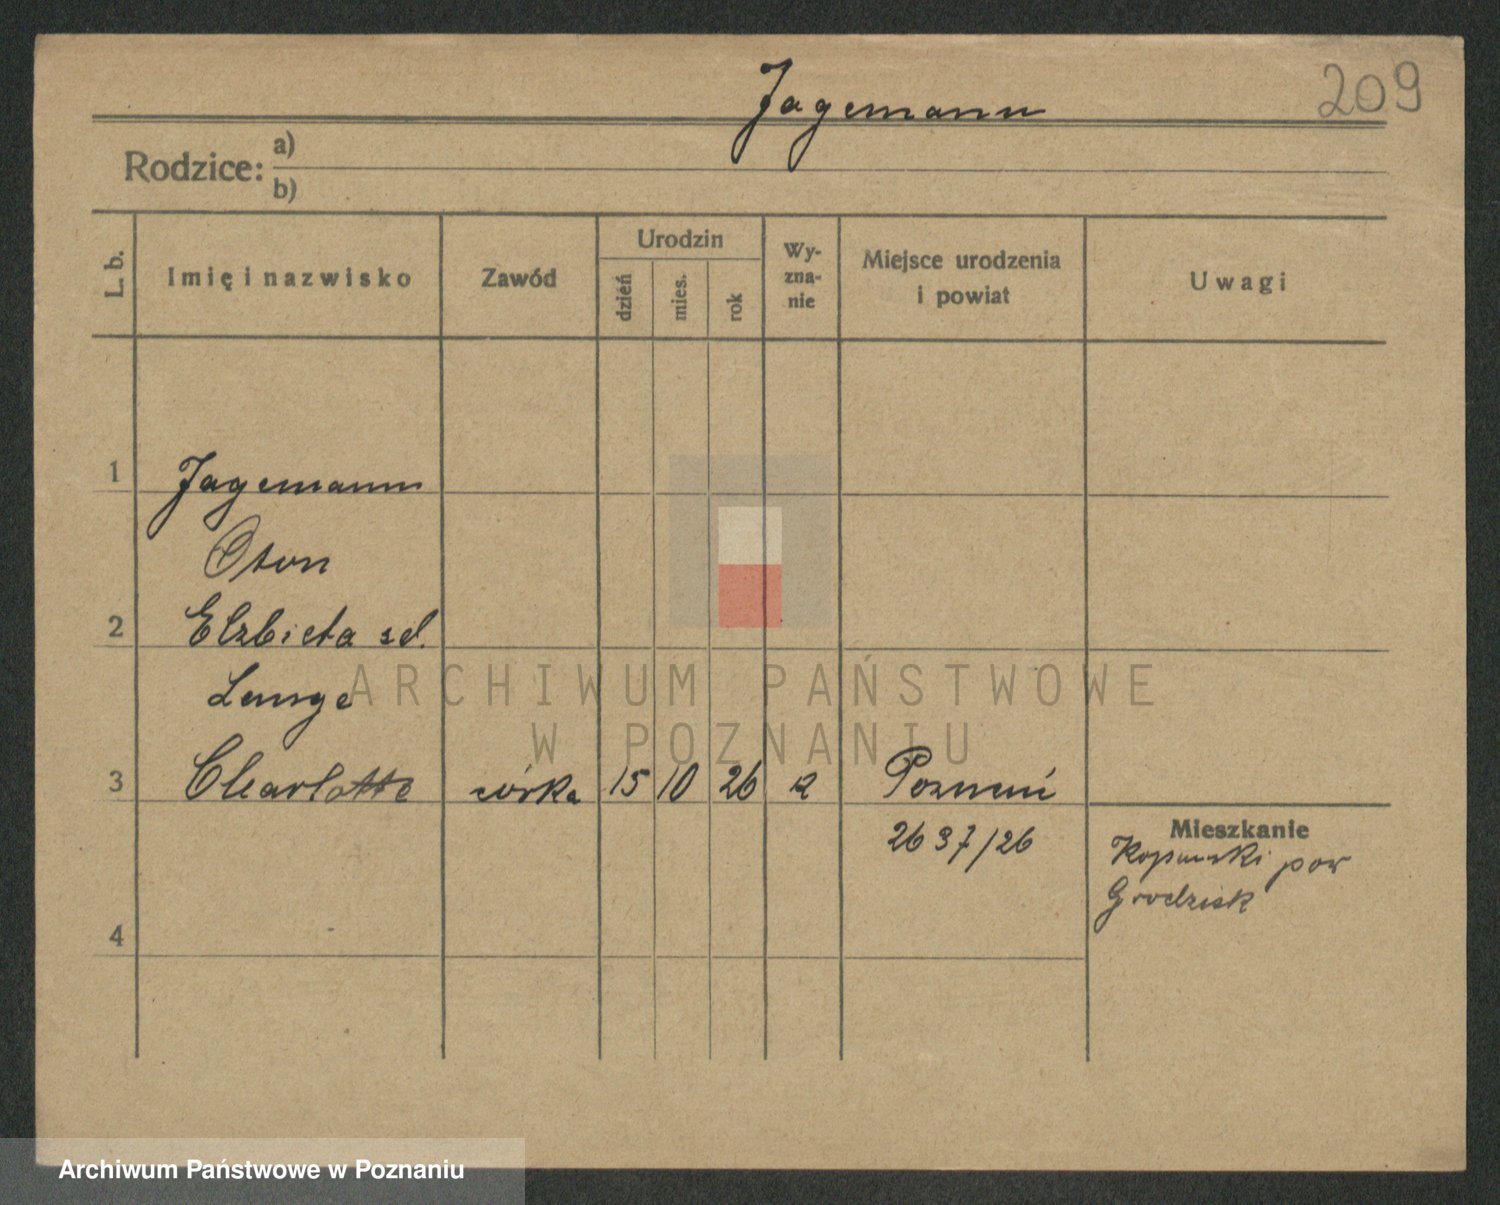 Jagemann
209
Rodzice: a)
b)
L. b.
Imię i nazwisko
Zawód
Urodzin
dzień
mies.
rok
Wy-
zna-
nie
Miejsce urodzenia
i powiat
Uwagi
1 Jagemann
Oton
2 Elzbieta sd.
Lange
3 Charlotte córka 15 10 26 Poznań
2637/26
Mieszkanie
pow
Grodzisk
4
ARCHIWUM PAŃSTWOWE
W POZNANIU
Archiwum Państwowe w Poznaniu